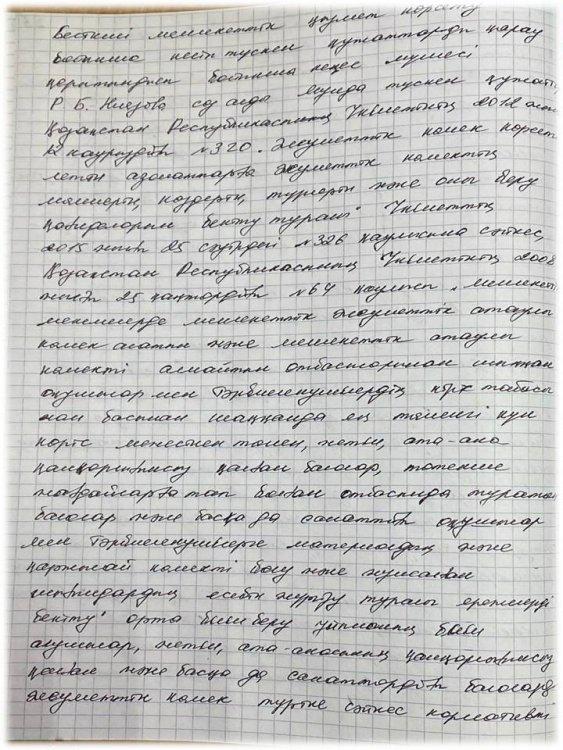 мемлекеттік қызмет көрсету
бойынша келіп түскен құжаттарды қарау
қорытындысы бойынша кеңес мүшесі
Р. Б. сөз алды түскен құжатт
Қазақстан Республикасының Үкіметінің 2012 жыл
12 наурыздағы №320. Әлеуметтік көмек көрсет
летін азаматтарға әлеуметтік көмектің
мөлшерін, көздерін, түрлерін және оны беру
қағидаларын бекіту туралы" Үкіметтің
2015 жылғы 25 сәуірдегі №326 қаулысына сәйкес,
Қазақстан Республикасының Үкіметінің 2008
жылғы 25 қаңтардағы №64 қаулысы "мемлекетті
мекемелерде мемлекеттік әлеуметтік атаулы
көмек алатын және мемлекеттік атаулы
көмекті алмайтын отбасыларынан шыққан
оқушылар мен тәрбиеленушілердің табысы
жан басынан шаққанда ең төменгі күн
көріс төмен, жетім, ата-ана
қамқорлығынсыз қалған балалар, төтенше
жағдайларға тап болған отбасында тұратын
балалар және басқа да санаттағы оқушылар
мен тәрбиеленушілерге материалдық және
қаржылай көмекті бөлу және жұмсалған
шығындардың есебін жүргізу туралы ережелерді
бекіту" орта білім беру ұйымының
оқушылар, жетім, ата-анасының қамқорлығынсыз
қалған және басқа да санаттардағы балаларға
әлеуметтік көмек түріне сәйкес нормативті